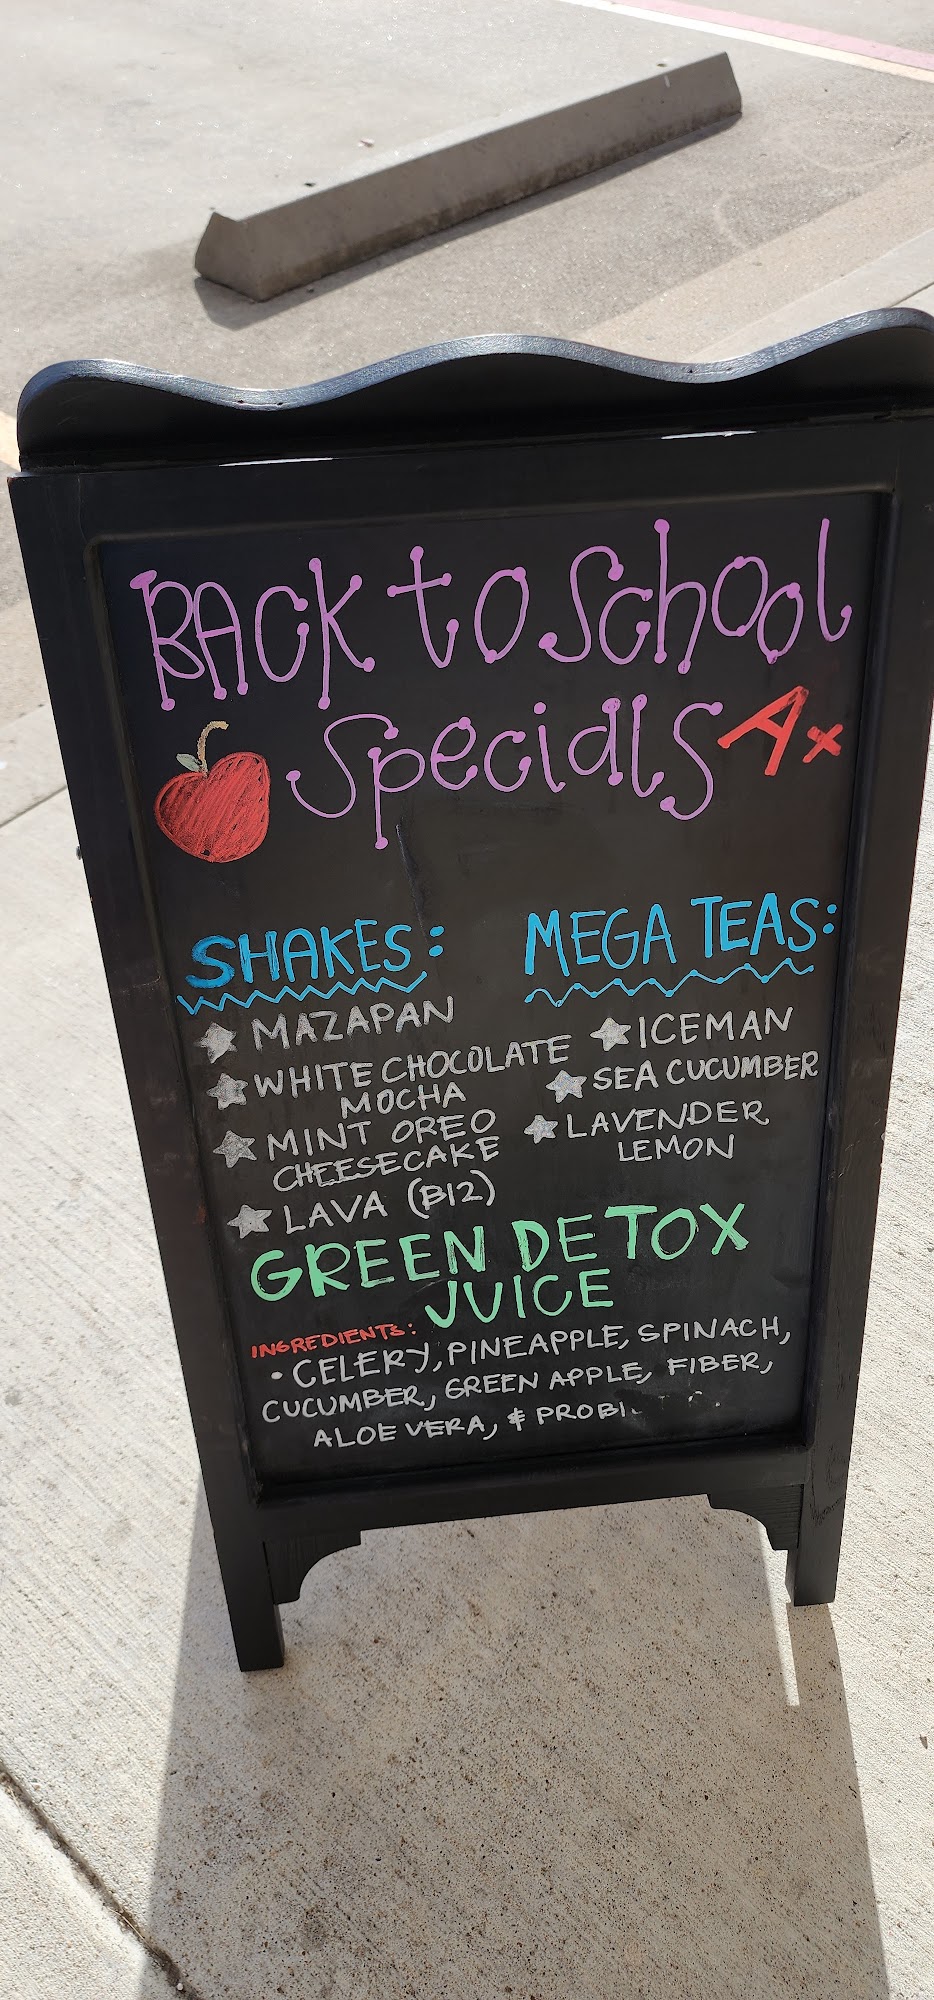 BACK to School
Specials A+
SHAKES:
MAZAPAN
WHITE CHOCOLATE
MOCHA
MINT OREO
CHEESECAKE
LAVA (B12)
MEGA TEAS:
ICEMAN
SEA CUCUMBER
LAVENDER
LEMON
GREEN DETOX
JUICE
INGREDIENTS:
• CELERY, PINEAPPLE, SPINACH,
CUCUMBER, GREEN APPLE, FIBER,
ALOE VERA, &